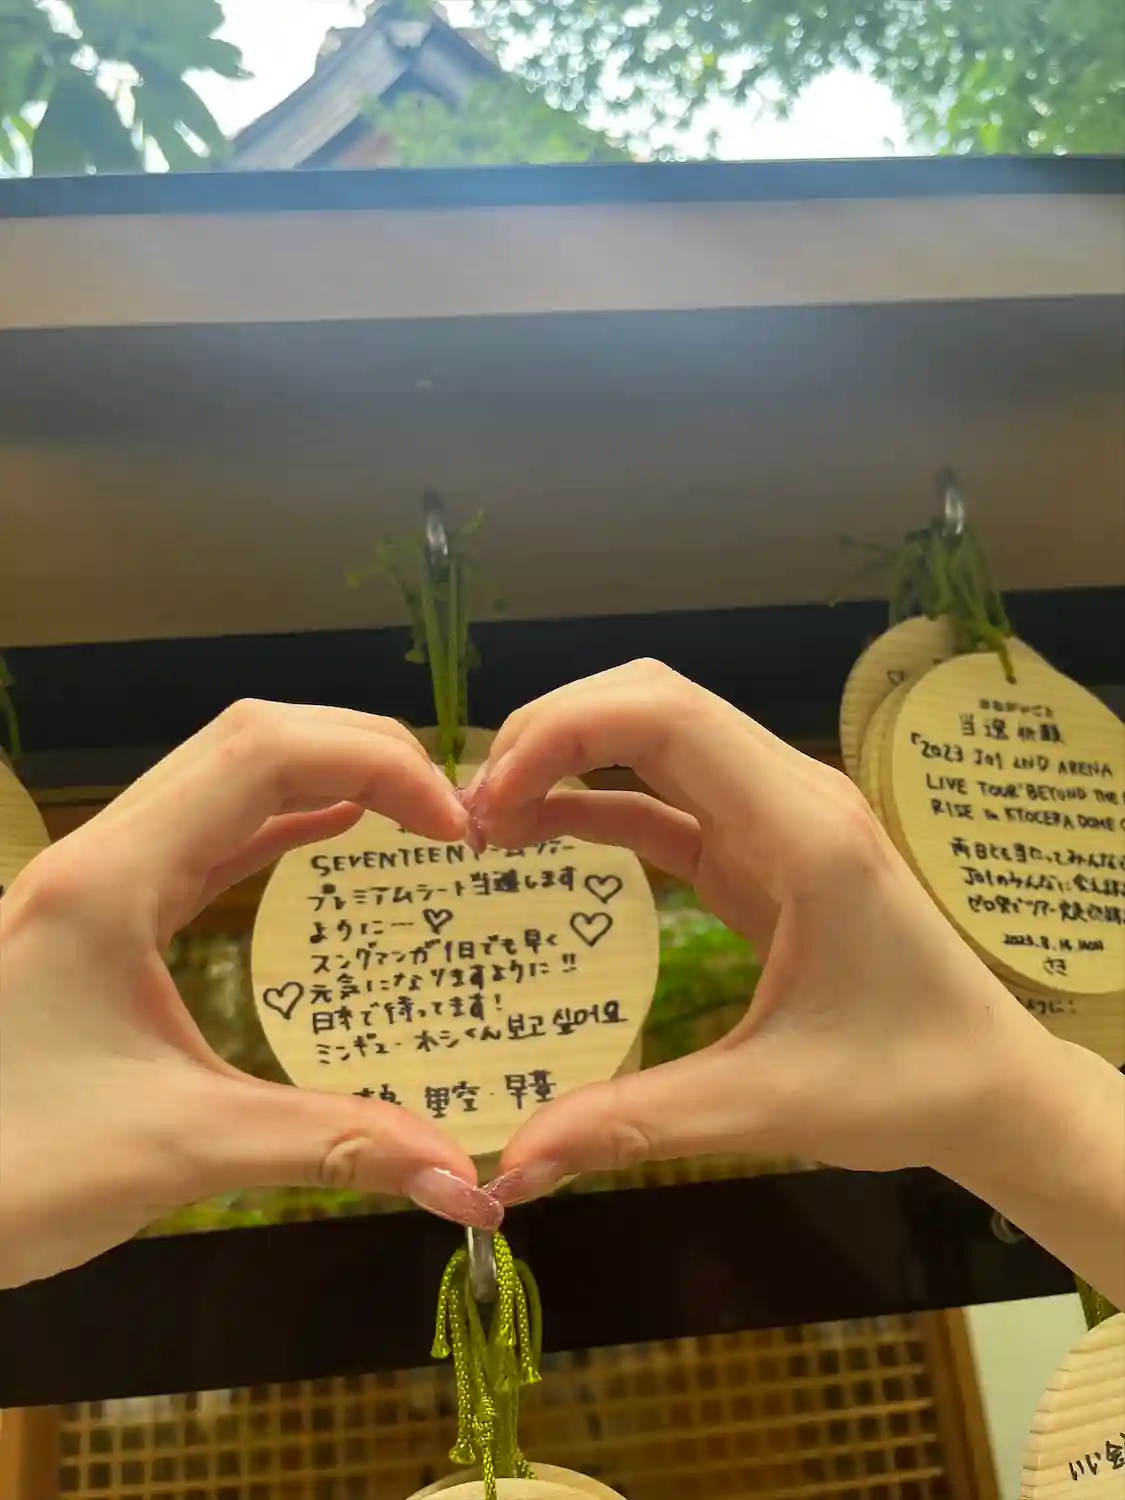 SEVENTEENドームツアー
プレミアムシート当選します
ように…
スングァンが1日でも早く
元気になりますように!!
日本で待ってます!
ミンギュ・ホシくん 보고 싶어요
当選祈願
「2023 JO1 2ND ARENA
LIVE TOUR'BEYOND THE
RISE in KYOCERA DOME
両日とも当たってみんな
JO1のみんなに会え
2023.8.14 MON
いい